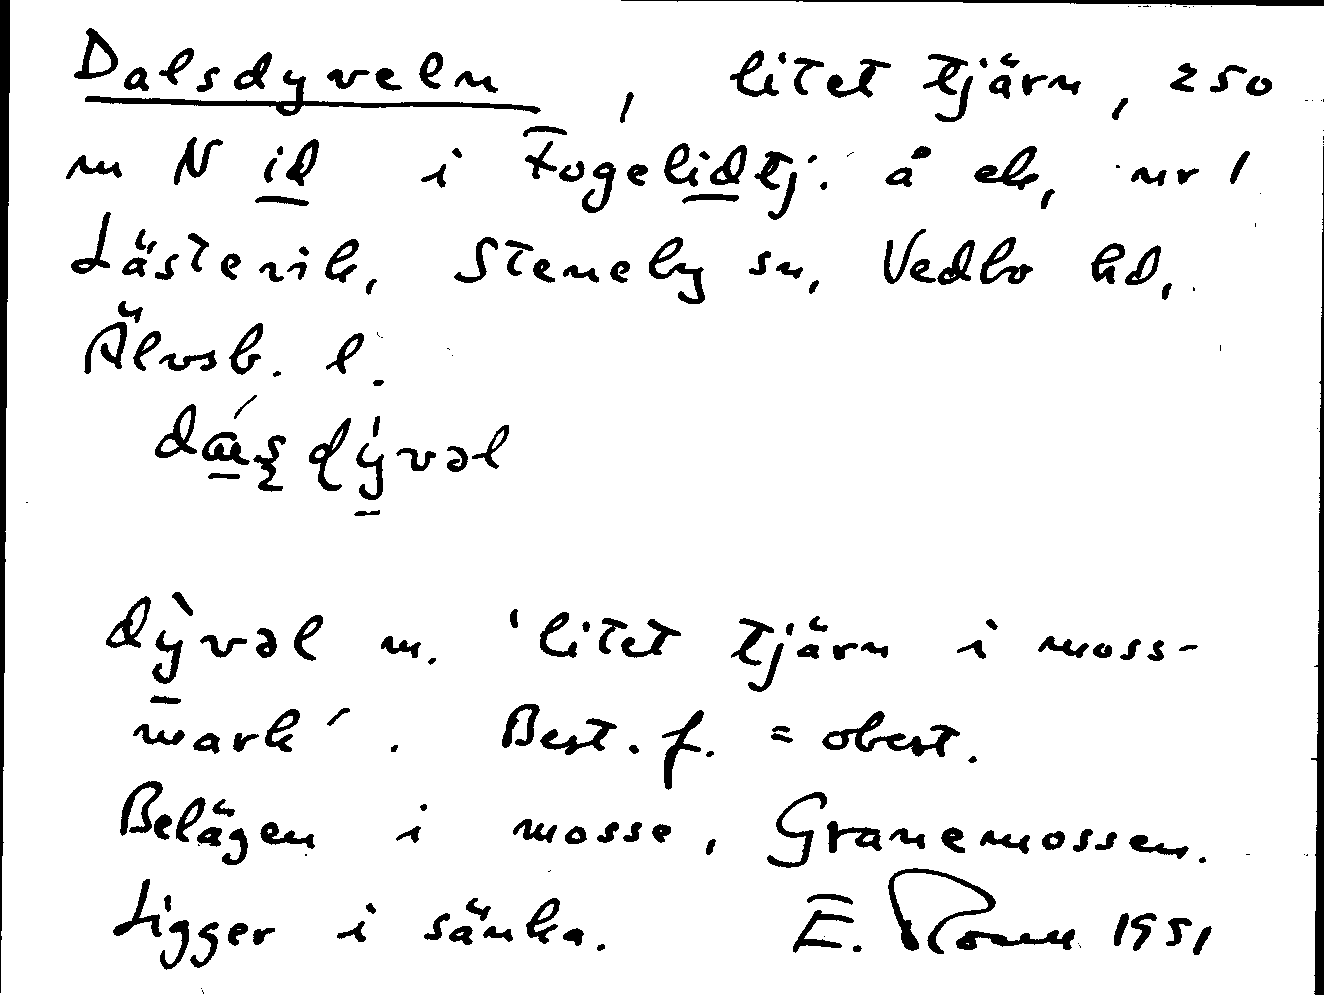 Dalsdyveln, litet tjärn, 250
m N id i Fogelidtj. å ek, nr 1
Lästevik, Steneby sn, Vedbo hd,
Älvsb. l.
dývəl
dỳvəl m. 'litet tjärn i moss-
mark'. Best. f. = obest.
Belägen i mosse, Granemossen.
Ligger i sänka. E. Rosell 1951